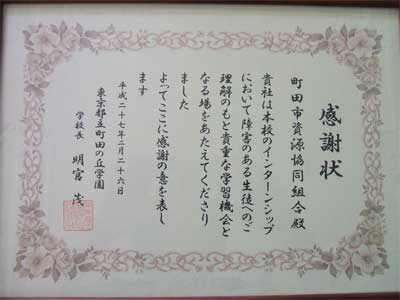 感謝状
町田市資源協同組合殿
貴社は本校のインターンシップ
において障害のある生徒へのご
理解のもと貴重な学習機会と
なる場をあたえてくださり
ました
よってここに感謝の意を表し
ます
平成二十七年二月二十六日
東京都立町田の丘学園
学校長 明官茂